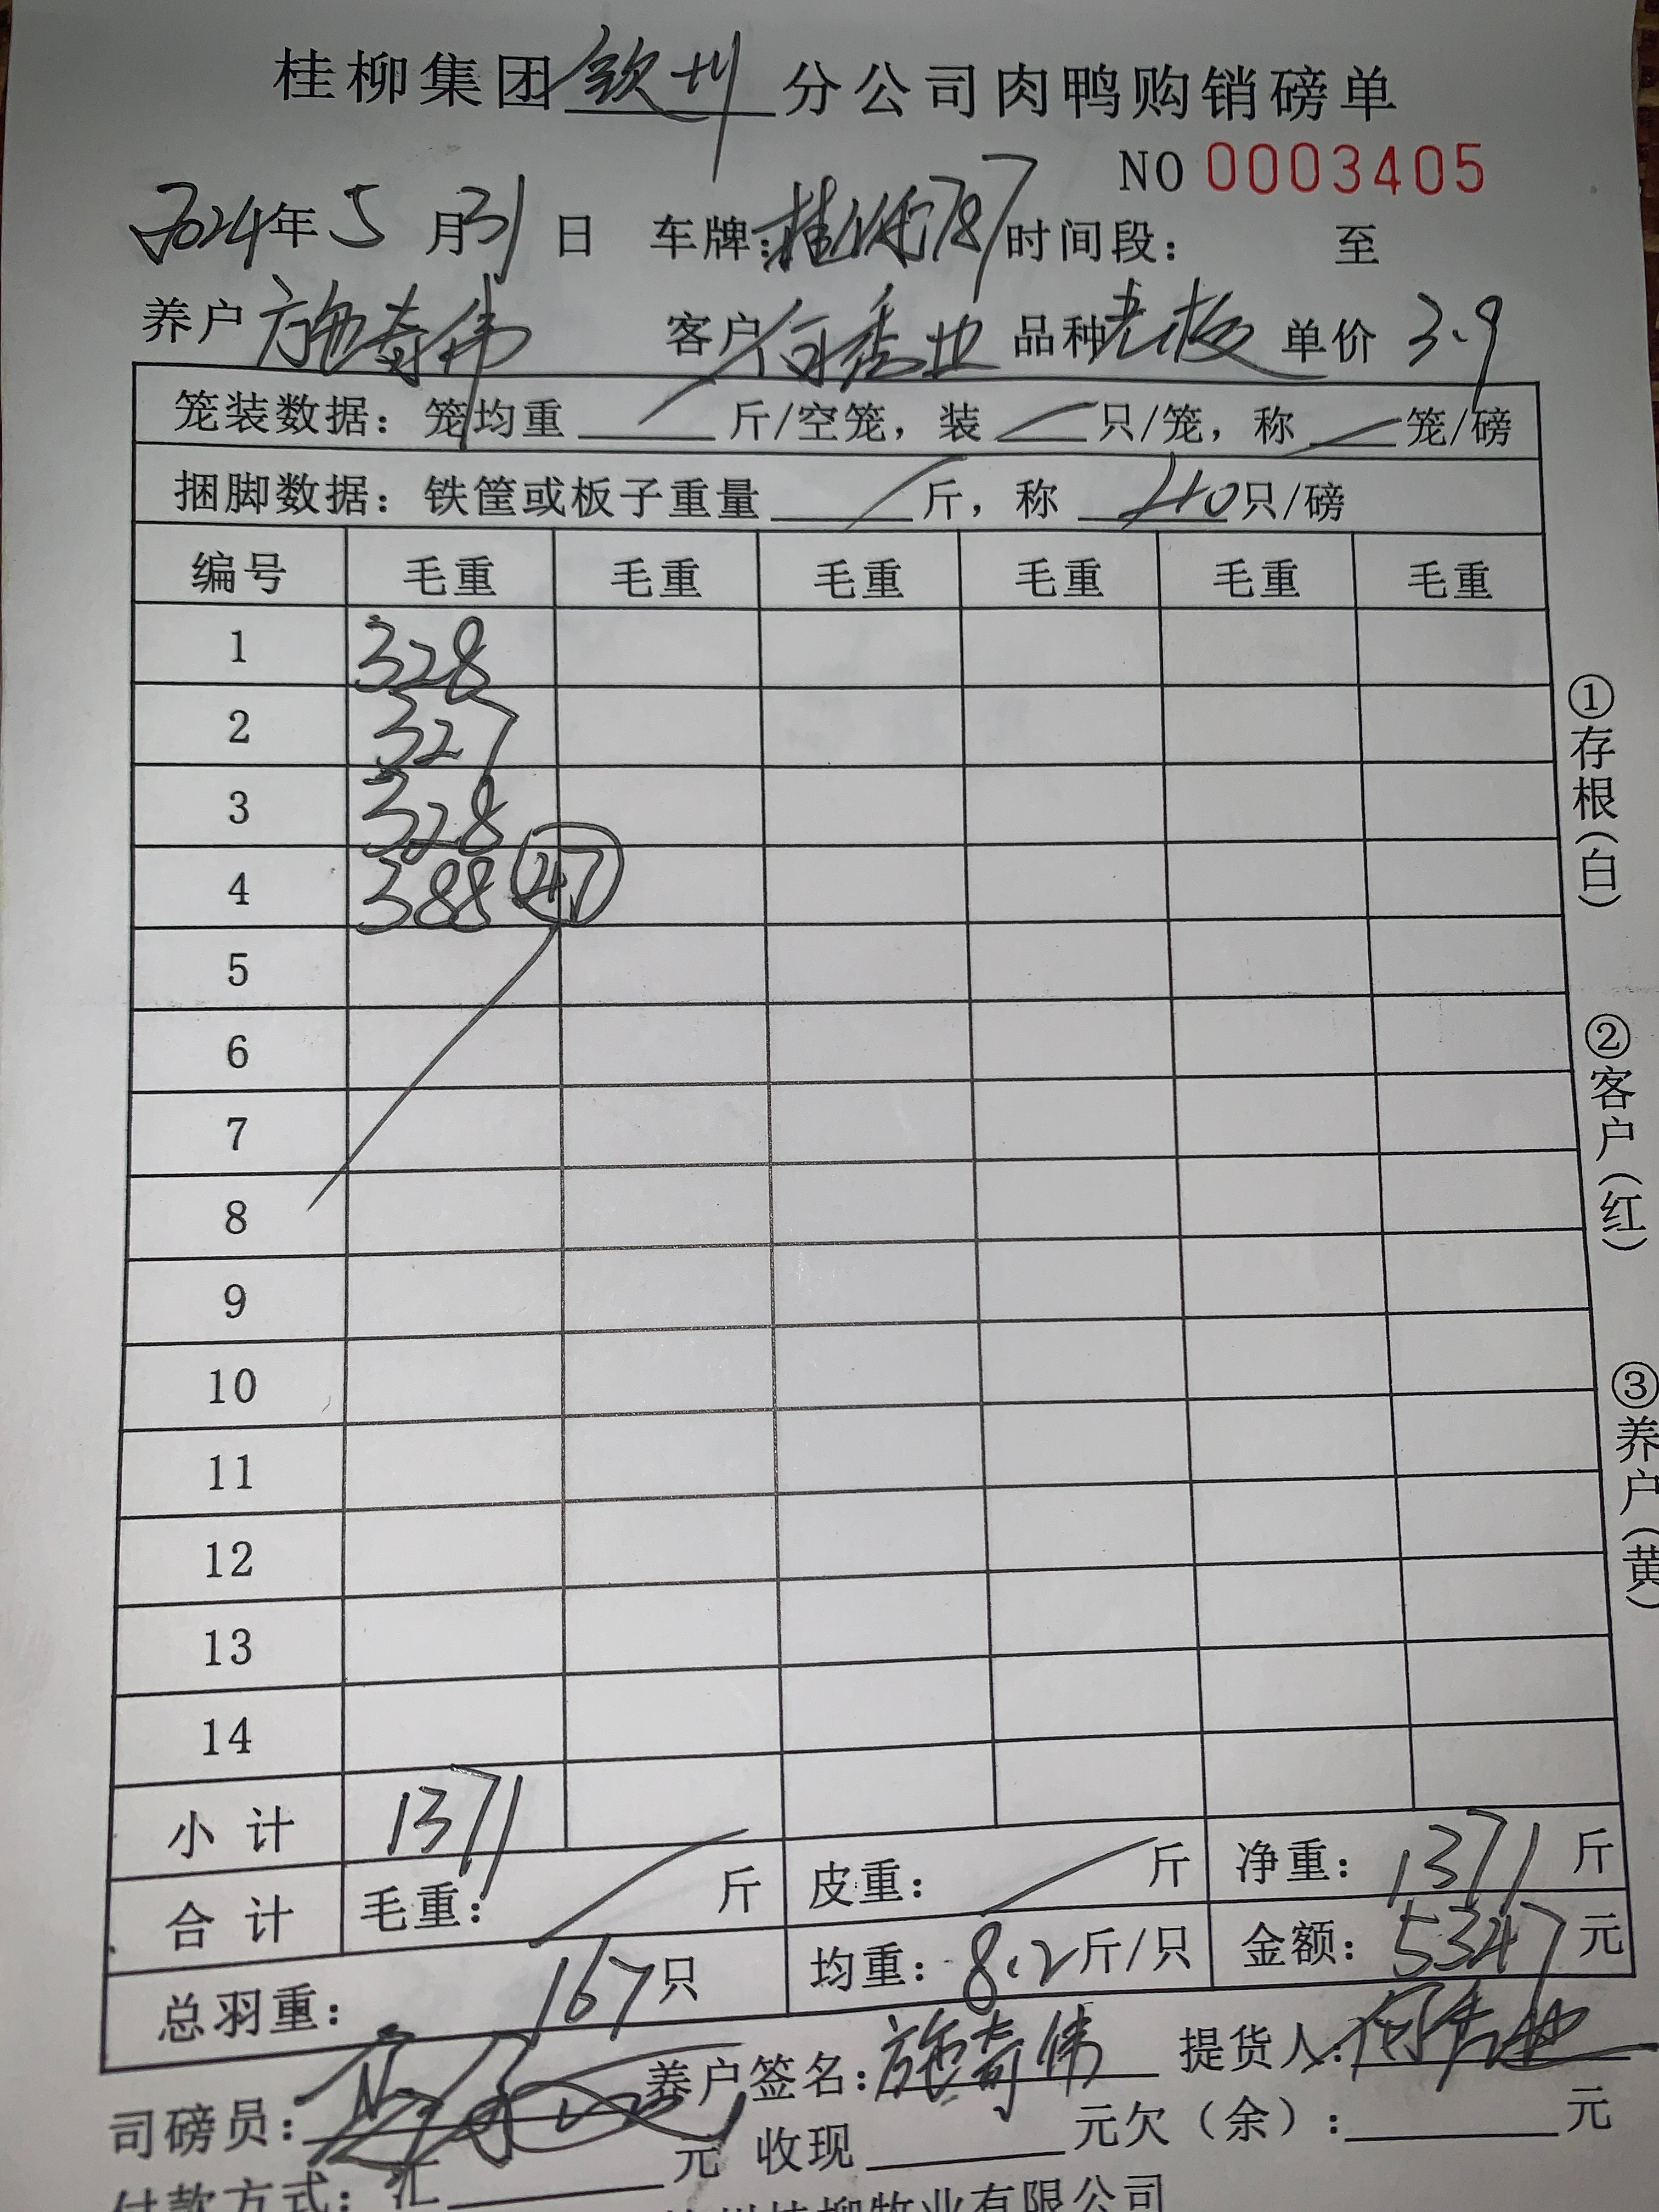 桂柳集团钦州分公司肉鸭购销磅单
NO 0003405
2024年5月31日 车牌: 787 时间段: 至
养户 施奇伟 客户 何秀业 品种 老板 单价 3.9
笼装数据: 笼均重 / 斤/空笼, 装 / 只/笼, 称 / 笼/磅
捆脚数据: 铁筐或板子重量 / 斤, 称 40只/磅
编号 毛重 毛重 毛重 毛重 毛重 毛重
1 328
2 327
3 328
4 388 47
5
6
7
8
9
10
11
12
13
14
小计 1371
合计 毛重: / 斤 皮重: / 斤 净重: 1371 斤
总羽重: 167只 均重: 8.2斤/只 金额: 5347元
司磅员: 养户签名: 施奇伟 提货人: 何秀业
付款方式: 汇 元 收现 元欠(余): 元
桂柳牧业有限公司
①存根(白)
②客户(红)
③养户(黄)